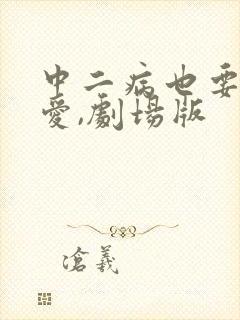 中二病也要
愛,劇場版
滄羲